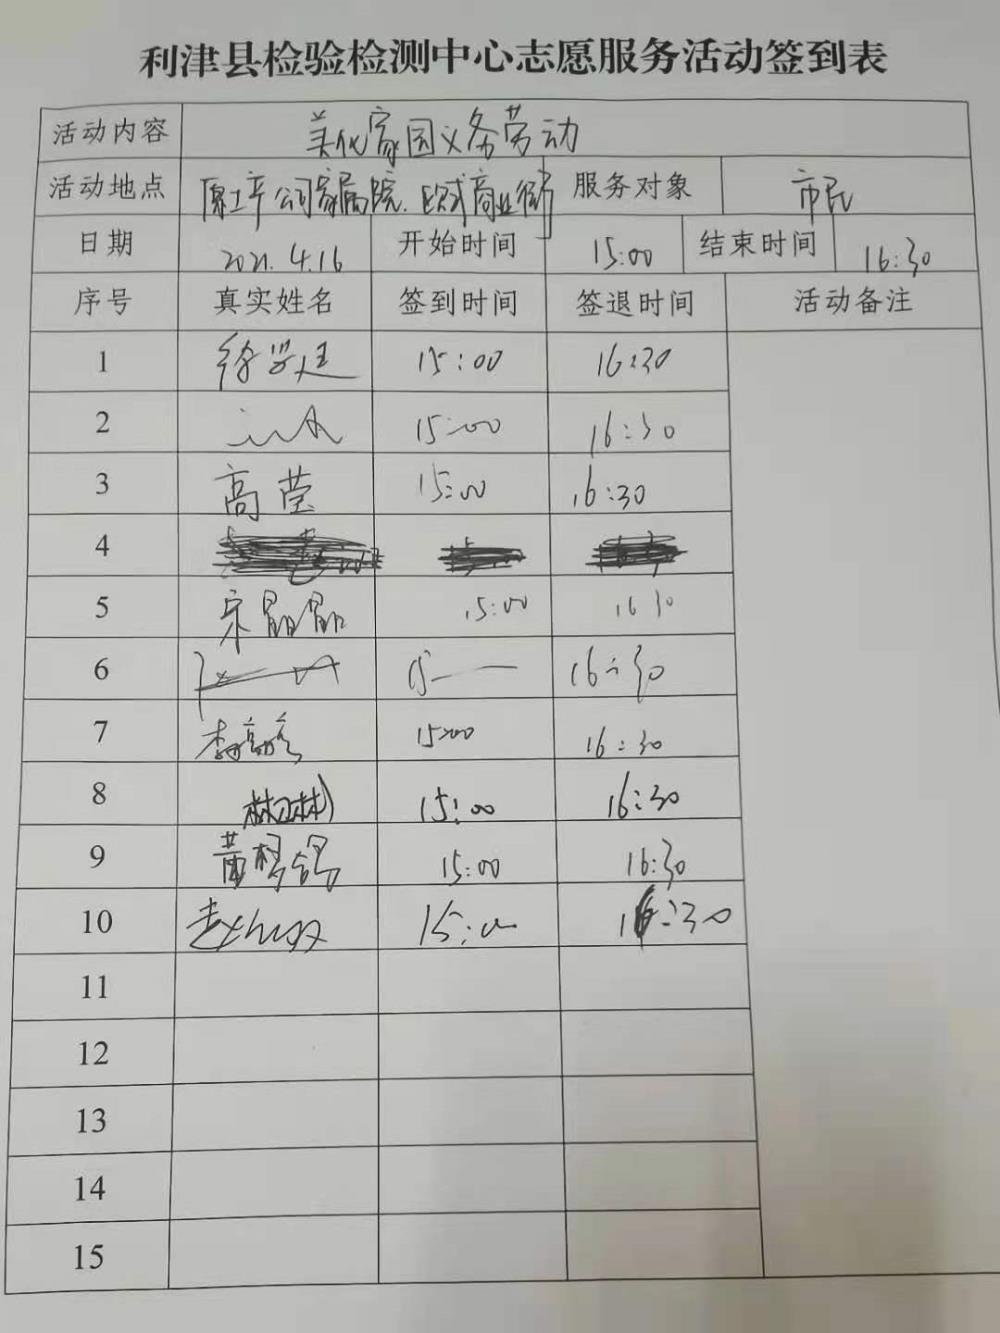 利津县检验检测中心志愿服务活动签到表
活动内容 美化家园义务劳动
活动地点 公司家属院.欧式商业街 服务对象 市民
日期 2021.4.16 开始时间 15:00 结束时间 16:30
序号 真实姓名 签到时间 签退时间 活动备注
1 15:00 16:30
2 15:00 16:30
3 高莹 15:00 16:30
4
5 宋晶晶 15:00 16 30
6 15 16:30
7 15:00 16:30
8 15:00 16:30
9 15:00 16:30
10 15:00 16:30
11
12
13
14
15